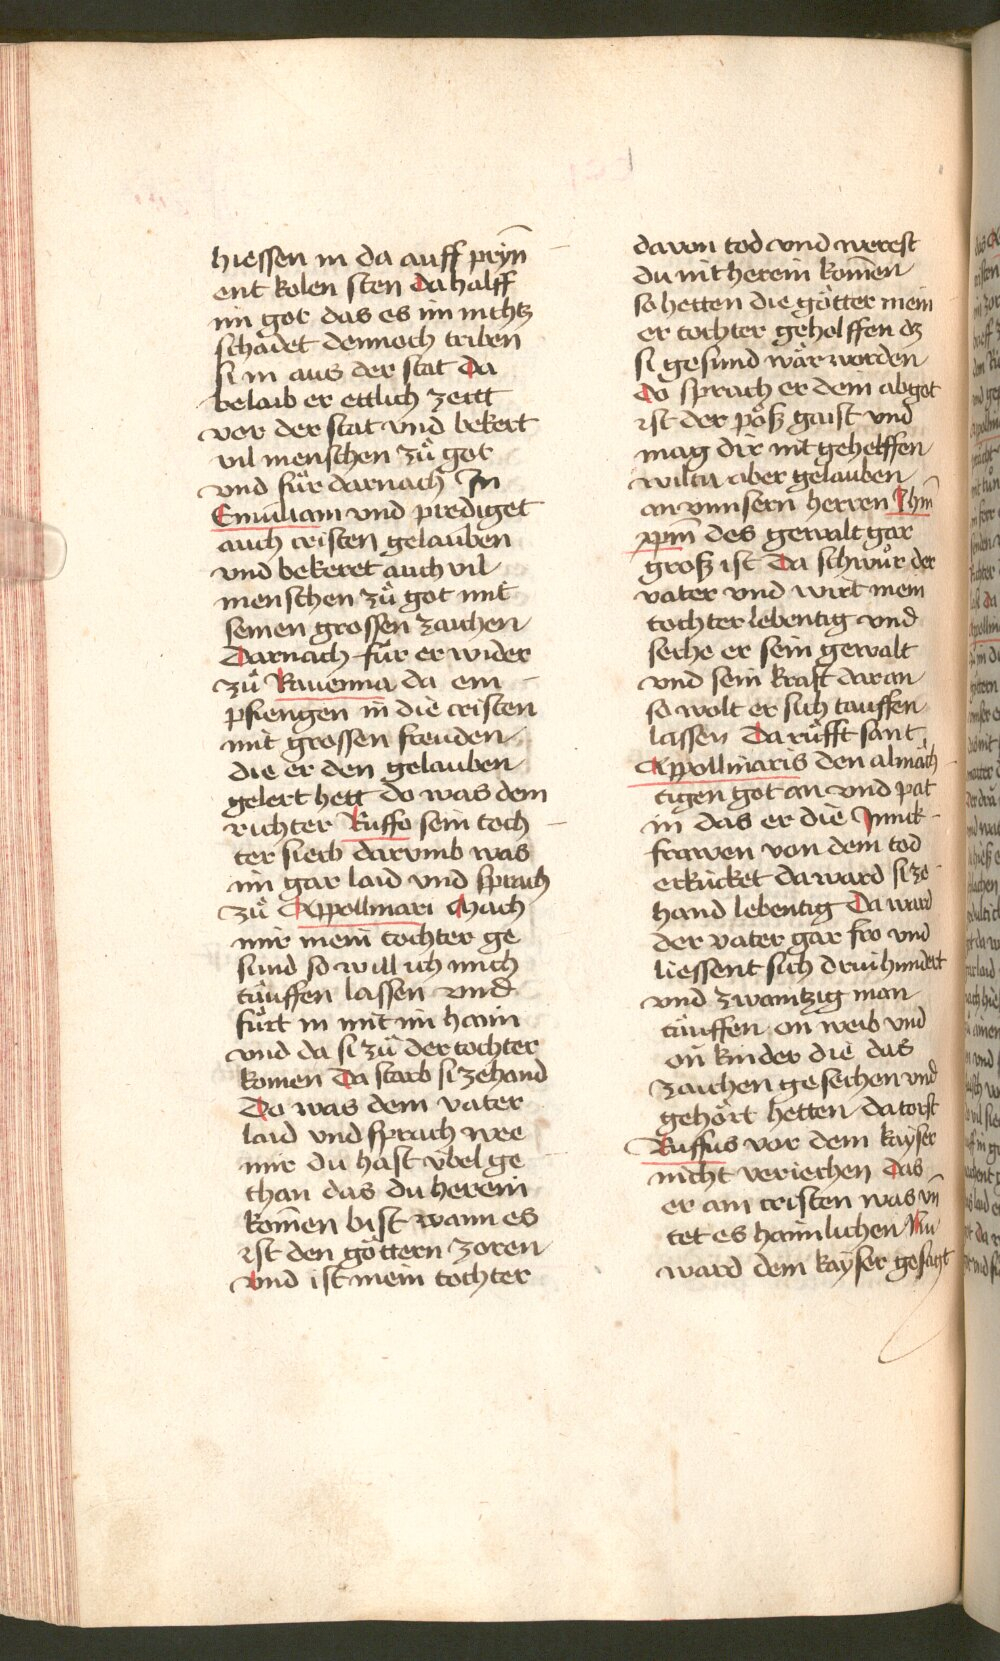 hiessen in da auff prÿn̄
ent kolen sten Da halff
im got das es im nichtz
schadet dennoch triben
si in aus der stat Da
belaib er ettlich zeitt
vor der stat vnd bekert
vil menschen zů got
vnd fůr darnach In
Emiliam vnd prediget
auch cristen gelauben
vnd bekeret auch vil
menschen zů got mit
seinen grossen zaichen
Darnach fůr er wider
zů Rauenna da em
pfiengen in die cristen
mit grossen freuden
die er den gelauben
gelert hett do was dem
richter Ruffo sein toch
ter siech darumb was
im gar laid vnd sprach
zů Appollinari Mach
mir mein tochter ge
sund so will ich mich
tauffen lassen vnd
fůrt in mit im haim
vnd da si zů der tochter
komen Da starb si zehand
Do was dem vater
laid vnd sprach wee
mir du hast v̈bel ge
than das du herein
kom̄en bist wann es
ist den göttern zoren
Vnd ist mein tochter
davon tod vnd werest
du nit herein kom̄en
so hetten die götter mein
er tochter geholffen dz
si gesund wär worden
Do sprach er dein abgot
ist der pöß gaist vnd
mag dir nit gehelffen
wiltu aber gelauben
an vnnsern herren Jhm̄
xpm̄ des gewalt gar
groß ist Da schwůr der
vater vnd wirt mein
tochter lebentig vnd
seche er sein gewalt
vnd sein kraft daran
so wolt er sich tauffen
lassen Da rüfft sant
Appollinaris den almäch
tigen got an vnd pat
in das er die Junck
frawen von dem tod
erkücket da ward si ze
hand lebentig Da ward
der vater gar fro vnd
liessent sich druihundert
vnd zwaintzig man
tauffen on weib vnd
on kinder die das
zaichen gesechen vnd
gehört hetten da torst
Ruffus vor dem kayser
nicht veriechen Das
er ain cristen was vn̄
tet es haimlichen Nu
ward dem kayser gesagt